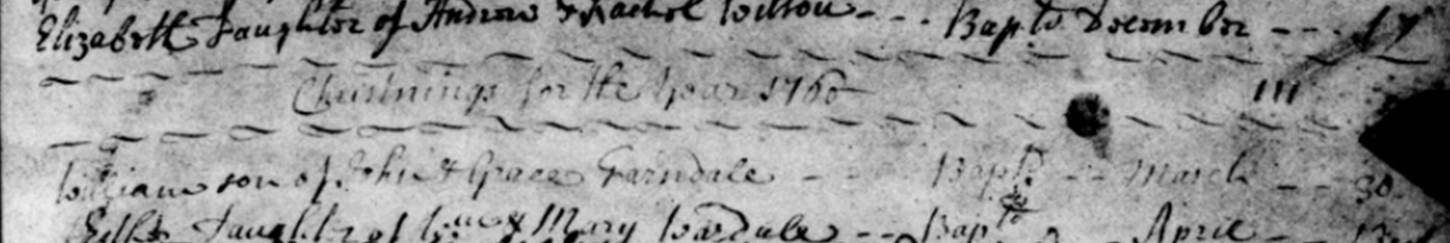 Elizabeth Daughter of Andrew & Rachel Wilson - - - Bap.td December - - - 17
Christnings for the Year 1760
William son of John & Grace Farndale - - Bap.td - - March - - 30
Daughtr of Wm & Mary Wardale - - Bap.td April